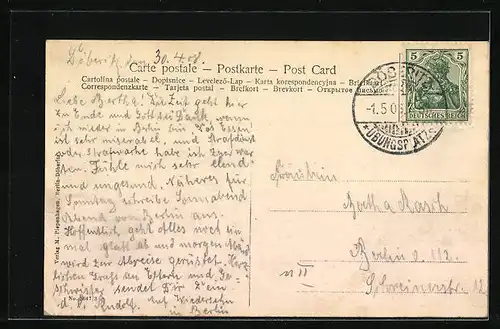 Döberitz, den 30.4.08.
Carte postale – Postkarte – Post Card
Cartolina postale - Dopisnice - Levelező-Lap - Karta korespondencyjna
Correspondenzkarte - Tarjeta postal - Brefkort - Brevkort - Открытое
5 5
DEUTSCHES REICH
DÖBERITZ
-1.5.0
*ÜBUNGSPLATZ*
Liebe Bertha! Die Zeit geht hier
zu Ende und Gott sei Dank, wenn
ich wieder in Berlin bin. Das Essen
ist sehr miserabel, und
oder Strafwache habe ich
Fühle mich sehr elend
und ungesund. Näheres für
Sonntag schreibe Sonnabend
Abend von Berlin aus.
Hoffentlich geht alles noch ein
mal glatt ab und morgen Abend
wird zur Abreise gerüstet. Herz-
lichen Gruß an Eltern und Ge-
schwister sendet Dir Dein
Rudolf. Auf Wiedersehn
in Berlin
Fräulein
Bertha Rasch
Berlin
Schreinerstr. 12
Verlag M. Piepenhagen, Berlin